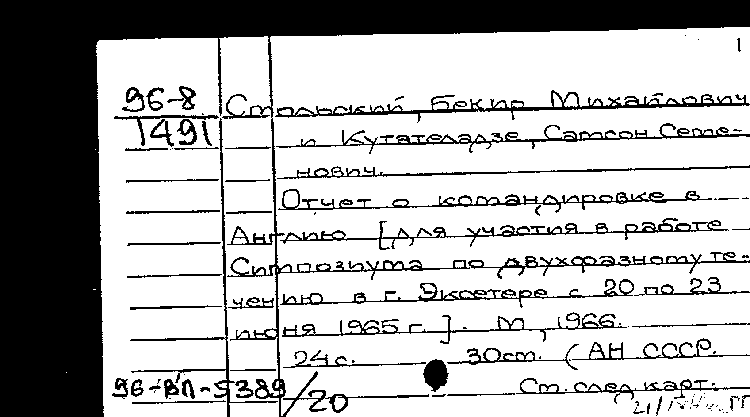 1
96-8 Стольский, Бекир Михайлович
1491 и Кутателадзе, Самсон Семе-
нович.
Отчет о командировке в
Англию [для участия в работе
Симпозиума по двухфазному те-
чению в г. Эксетере с 20 по 23
июня 1965 г.]. М, 1966.
24с. 30см. (АН СССР.
96-ВП-5389/20 См. след. карт.